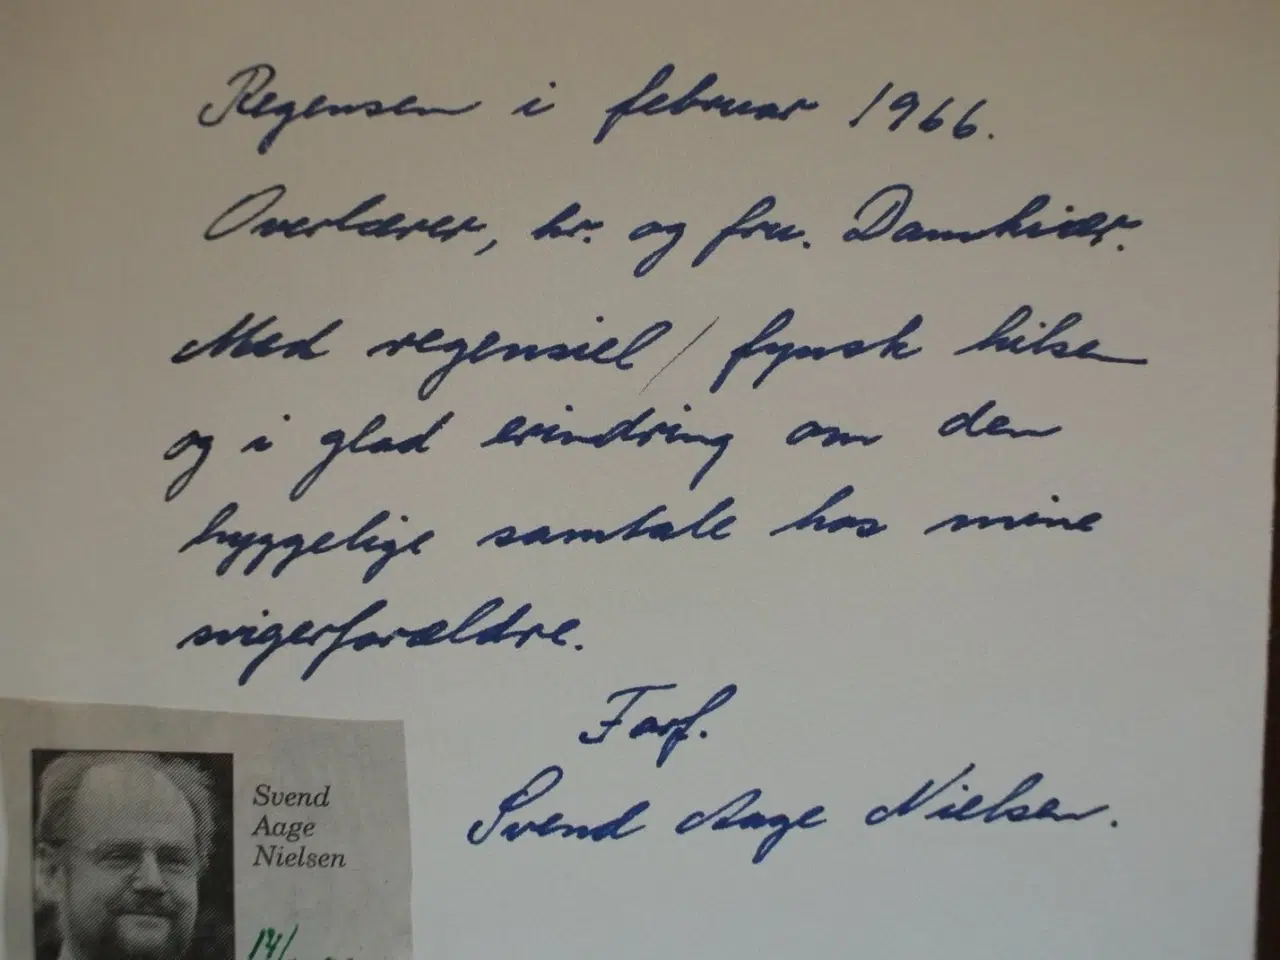 Regensen i februar 1966.
Overlærer, hr. og fru. Damkiær.
Med regensiel / fynsk hilsen
og i glad erindring om den
hyggelige samtale hos mine
svigerforældre.
Forf.
Svend Aage Nielsen.
Svend
Aage
Nielsen
14/